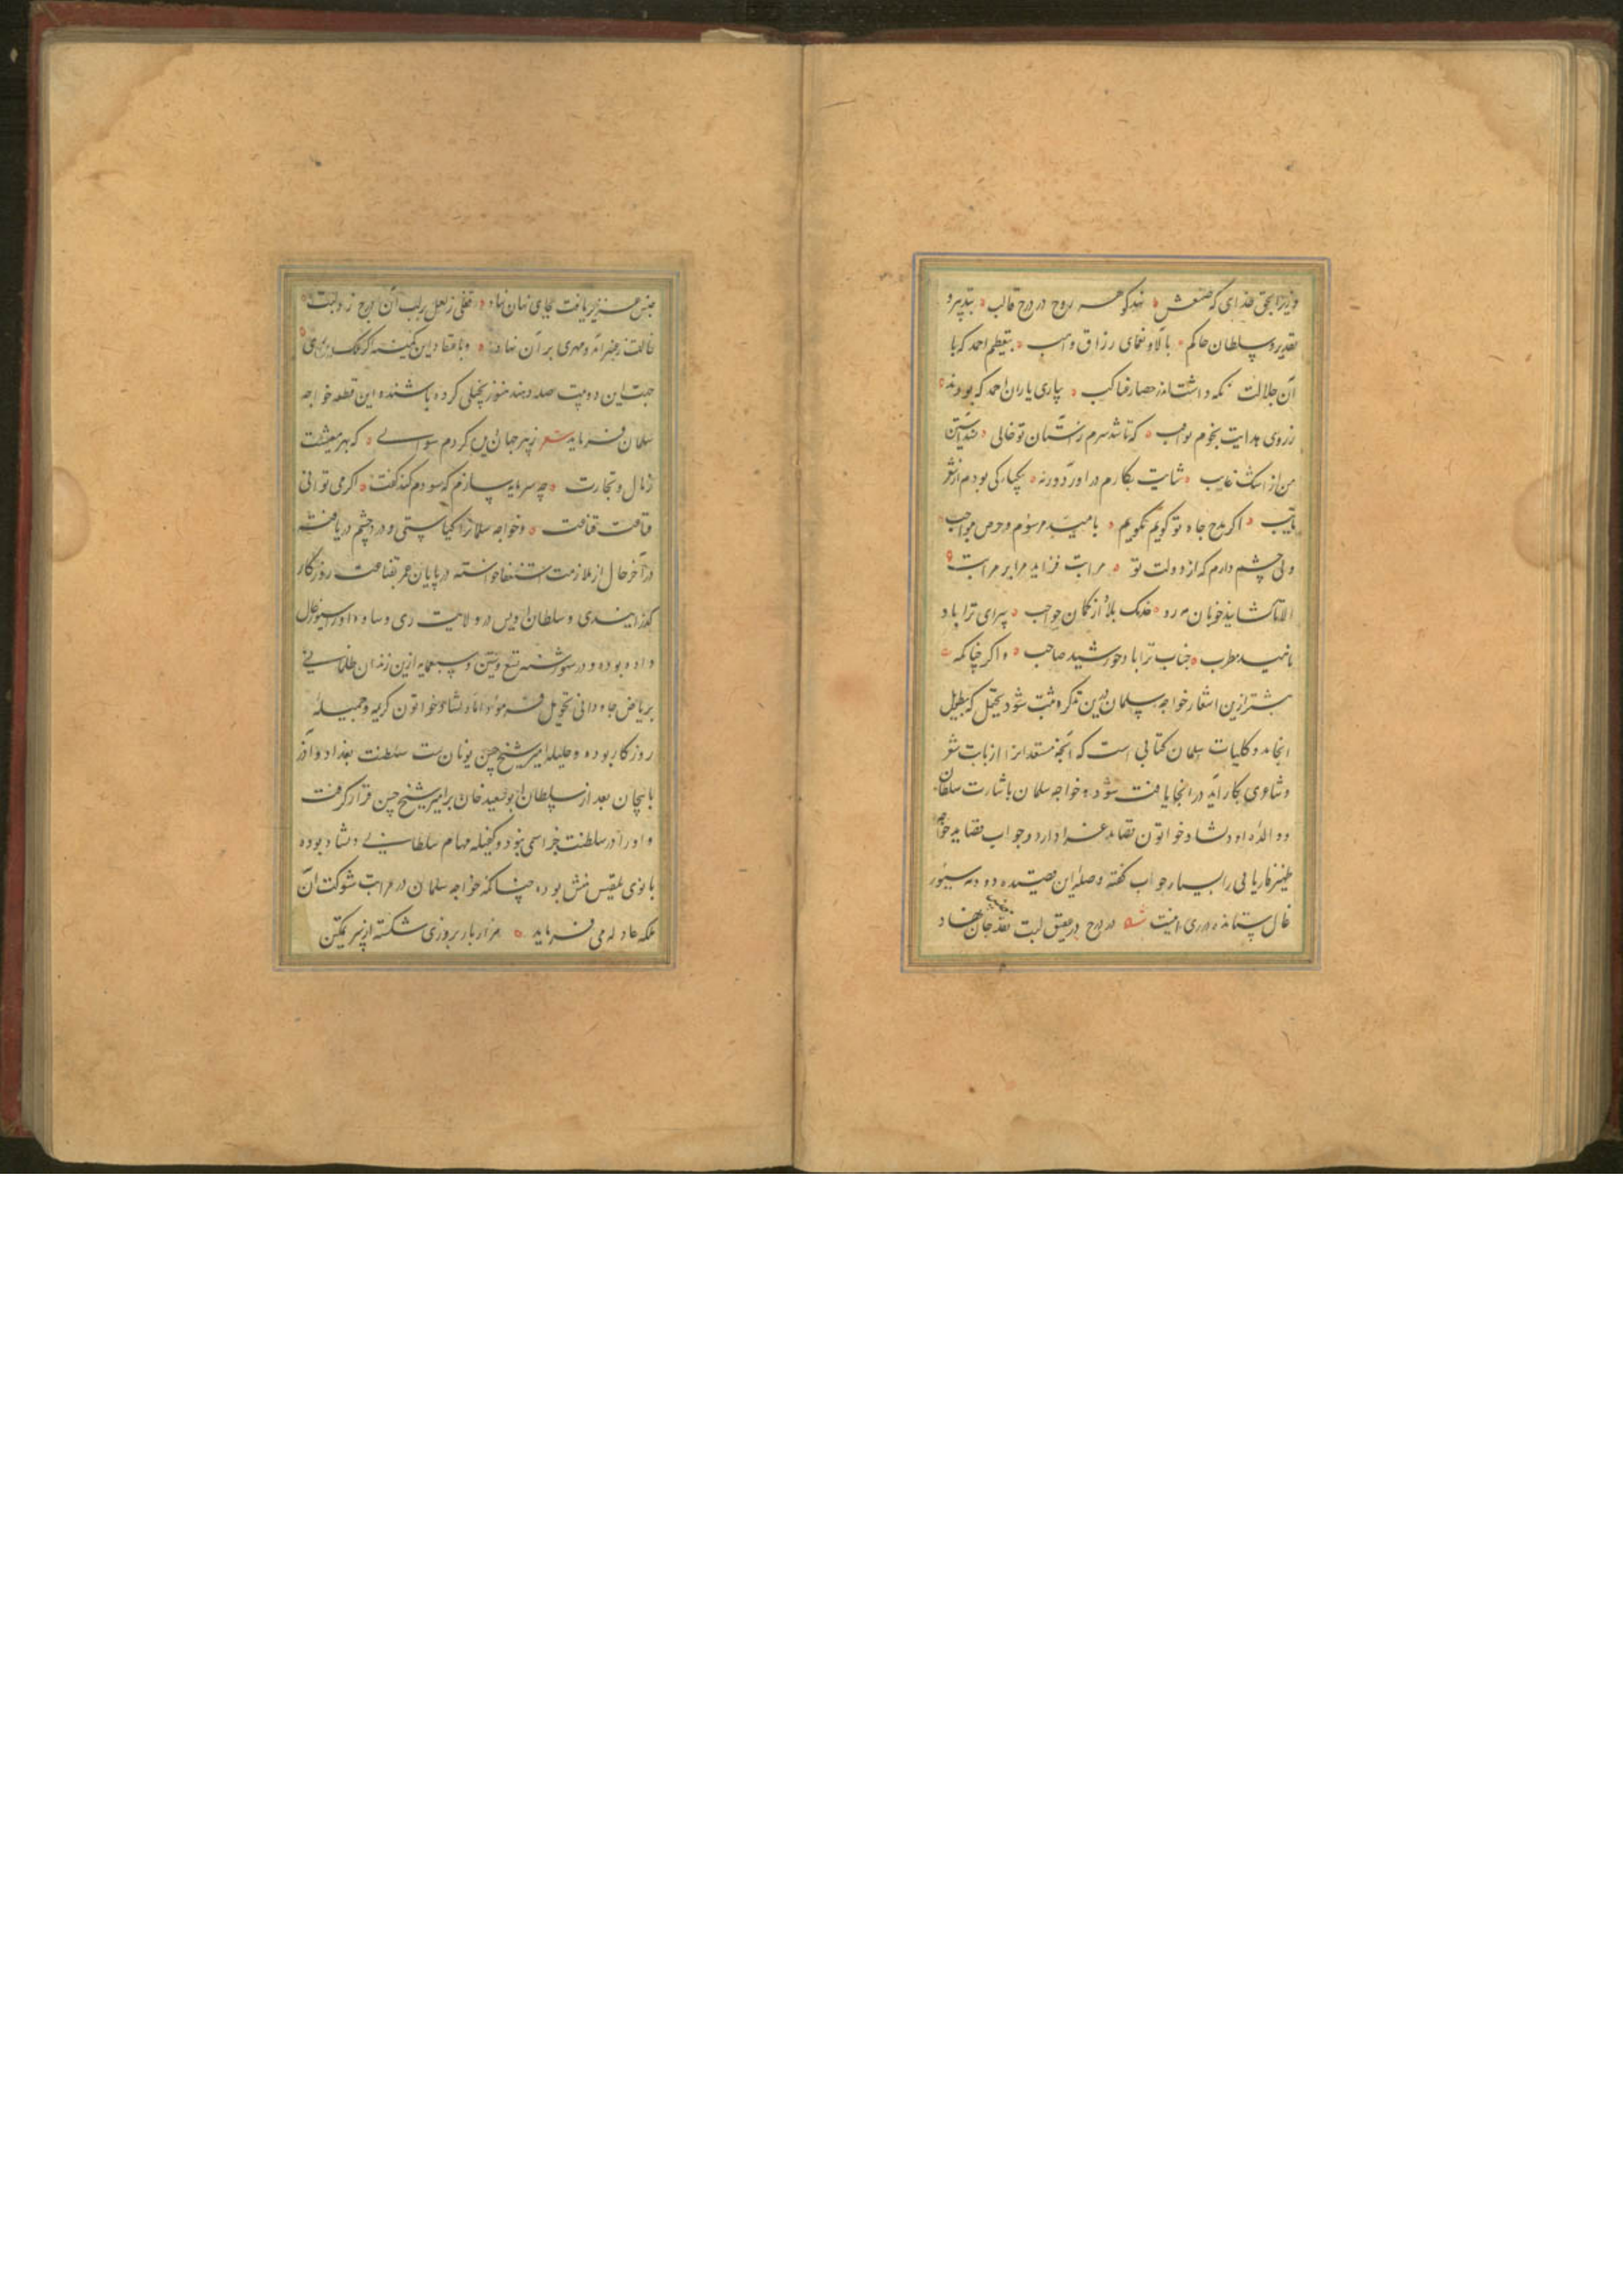 وزیرا بحق خدای که صنعش نهد گوهر روح در درج قالب بتدبیر و
تقدیر و سلطان حاکم بآلا و نعمای رزاق واهب بتعظیم احمد که با
آن جلالت نگه داشت اندر حصار عناکب بیاری یاران احمد که بودند
ز روی هدایت نجوم ثواقب که تا شد سرم ز آستان تو خالی نشد آستین
من از اشک غایب
اگر مدح جاه تو گویم نگویم بامید مرسوم و حرص مواجب
ولی چشم دارم که از دولت تو مراتب فزاید مرا بر مراتب
الا تا گشایند خوبان مه رو خدنگ بلا از کمان حواجب سرای ترا باد
ناهید مطرب جناب ترا باد خورشید صاحب و اگر چنانکه
بیشتر ازین اشعار خواجه سلمان درین تذکره مثبت شود یحتمل که بتطویل
انجامد و کلیات سلمان کتابی است که آنچه مستعدانرا از بابت شعر
و شاعری بکار آید در آنجا یافت شود و خواجه سلمان باشارت سلطان
و والده او دلشاد خواتون قصاید غرا دارد و جواب قصاید خواجه
ظهیر فاریابی را بسیار جواب گفته و صله این قصیده دو ده سیور
غال ستانده در ری اینست در درج در عقیق لبت نقد جان نهاد
جنس عزیز یافت بجای نهان نهاد قفلی ز لعل بر لب آن درج زد لبت
خالت ز عنبر آمد و مهری بر آن نهاد و باعتقاد این کمینه اگر ملک ری
جهت این دو بیت صله دهند هنوز بخیلی کرده باشند و این قطعه خواجه
سلمان فرماید شعر ز پیر جهان بین کردم سؤالی که بهر معیشت
ز مال و تجارت چه سرمایه سازم که سودم کند گفت اگر می توانی
قناعت قناعت و خواجه سلمانرا گیاستی و درد چشم دریافته
در آخر حال از ملازمت استعفا خواسته در پایان عمر بقناعت روزگار
گذرانیدی و سلطان اویس در ولایت ری و ساوه او را سیورغال
داده بوده و در شهور سنه تسع و ستین و سبعمایه ازین زندان ظلمانی
بریاض جاودانی تحویل فرمود اما دلشاد خواتون کریمه و جمیله
روزگار بوده و حلیله امیر شیخ حسن نویان ست سلطنت بغداد و آذر
بایجان بعد از سلطان ابو سعید خان بر امیر شیخ حسن قرار گرفت
و او را در سلطنت جز اسمی نبود و کفیله مهام سلطانی دلشاد بوده
بانوی بلقیس منش بوده چنانکه خواجه سلمان در مراتب شوکت آن
ملکه عادله می فرماید هزار بار بروزی شکسته از سر تمکین